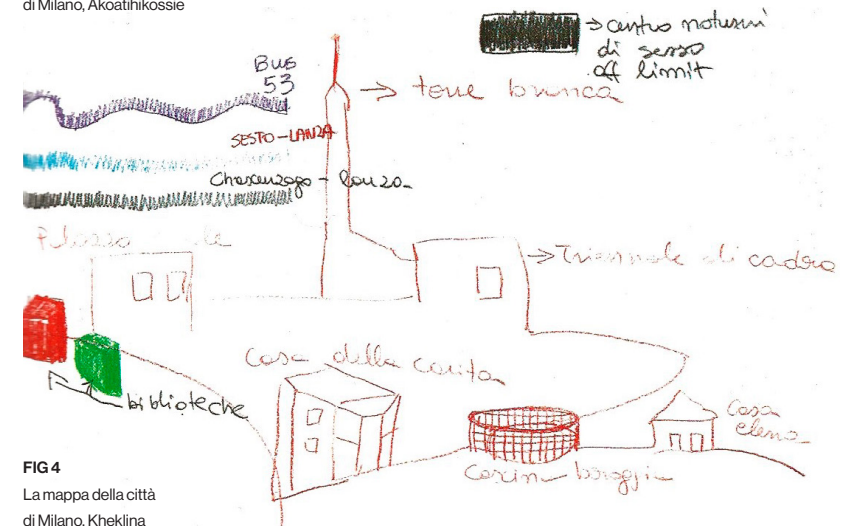 di Milano, Akoatihikossie
→ centro noturni
di sesso
off limit
Bus
53
→ torre branca
SESTO-LANZA
Chascenzago - Lanza
→ Triennale di cadra
Casa della carita
biblioteche
Casa
elena
Cascin
FIG 4
La mappa della città
di Milano, Kheklina